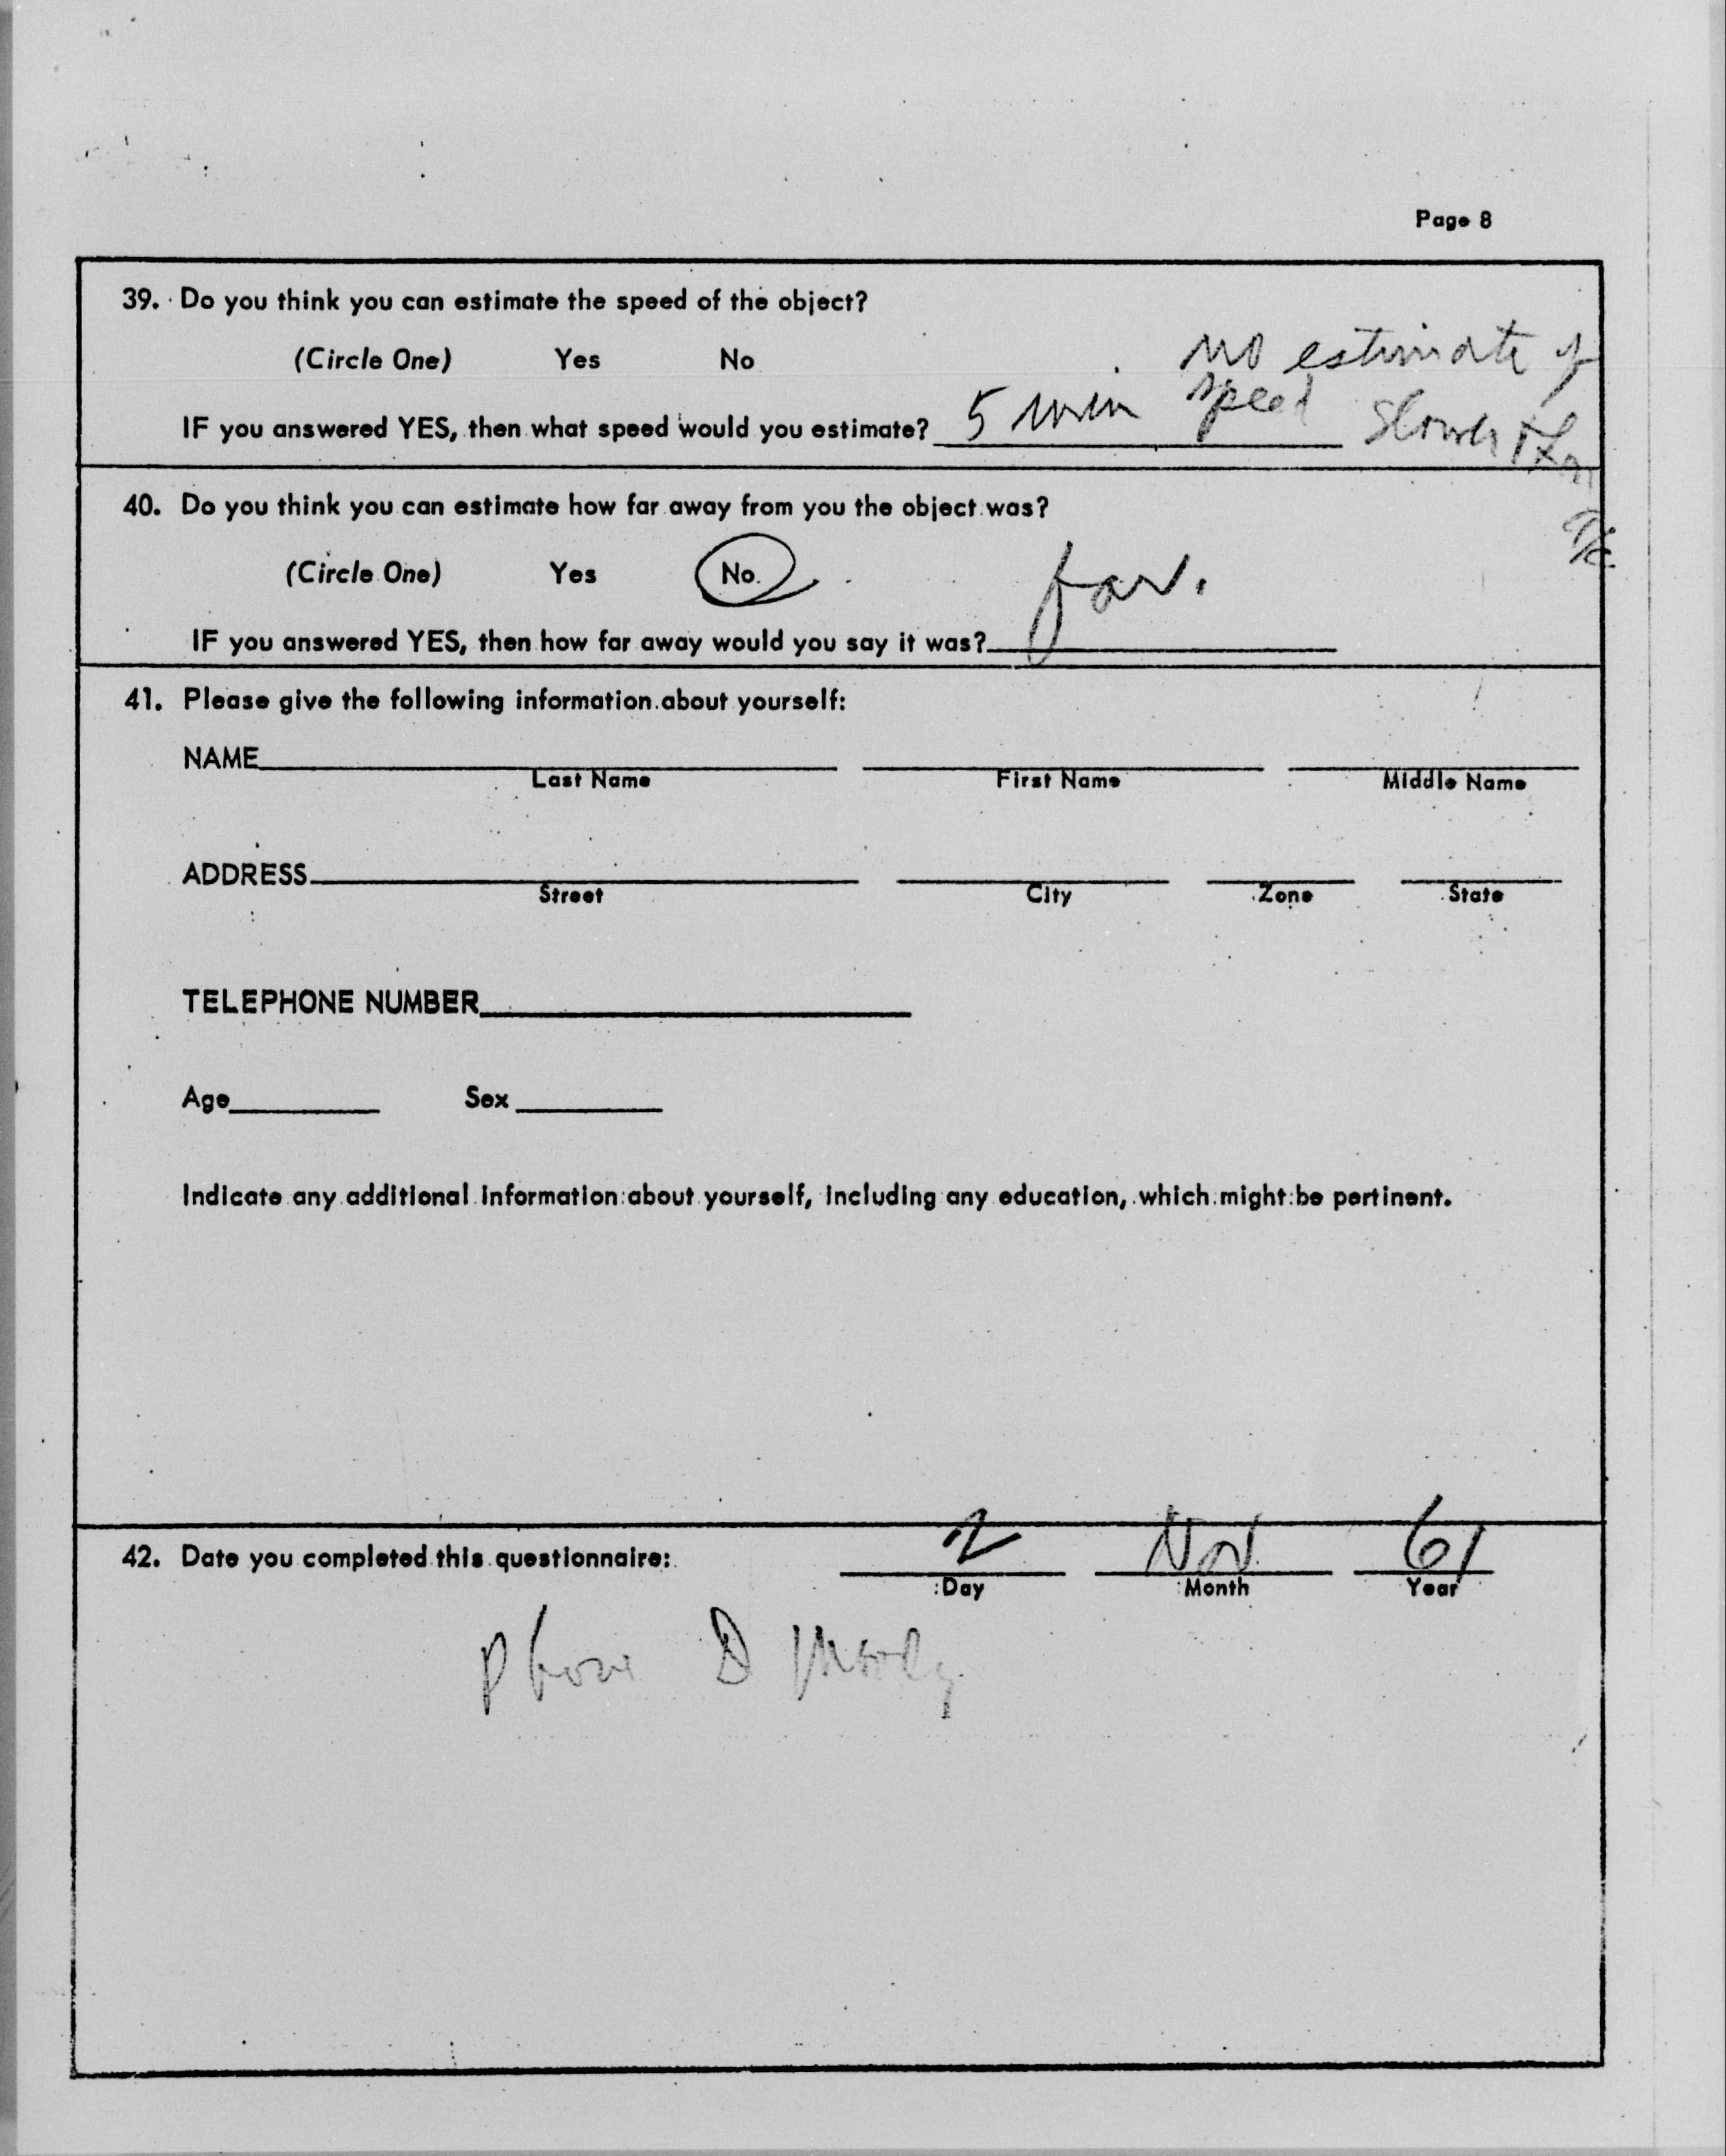 Page 8
39. Do you think you can estimate the speed of the object?
(Circle One) Yes No
no estimate of
speed
IF you answered YES, then what speed would you estimate? 5 min
slower than
a/c
40. Do you think you can estimate how far away from you the object was?
(Circle One) Yes No
IF you answered YES, then how far away would you say it was? far.
41. Please give the following information about yourself:
NAME
Last Name First Name Middle Name
ADDRESS
Street City Zone State
TELEPHONE NUMBER
Age Sex
Indicate any additional information about yourself, including any education, which might be pertinent.
42. Date you completed this questionnaire: 2 Nov 61
Day Month Year
Phone D